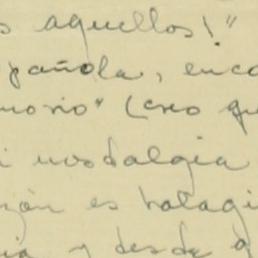 s aquellos!"
pañola, enco
morio" (creo qu
i nostalgia
zón es halagi
ia y desde q